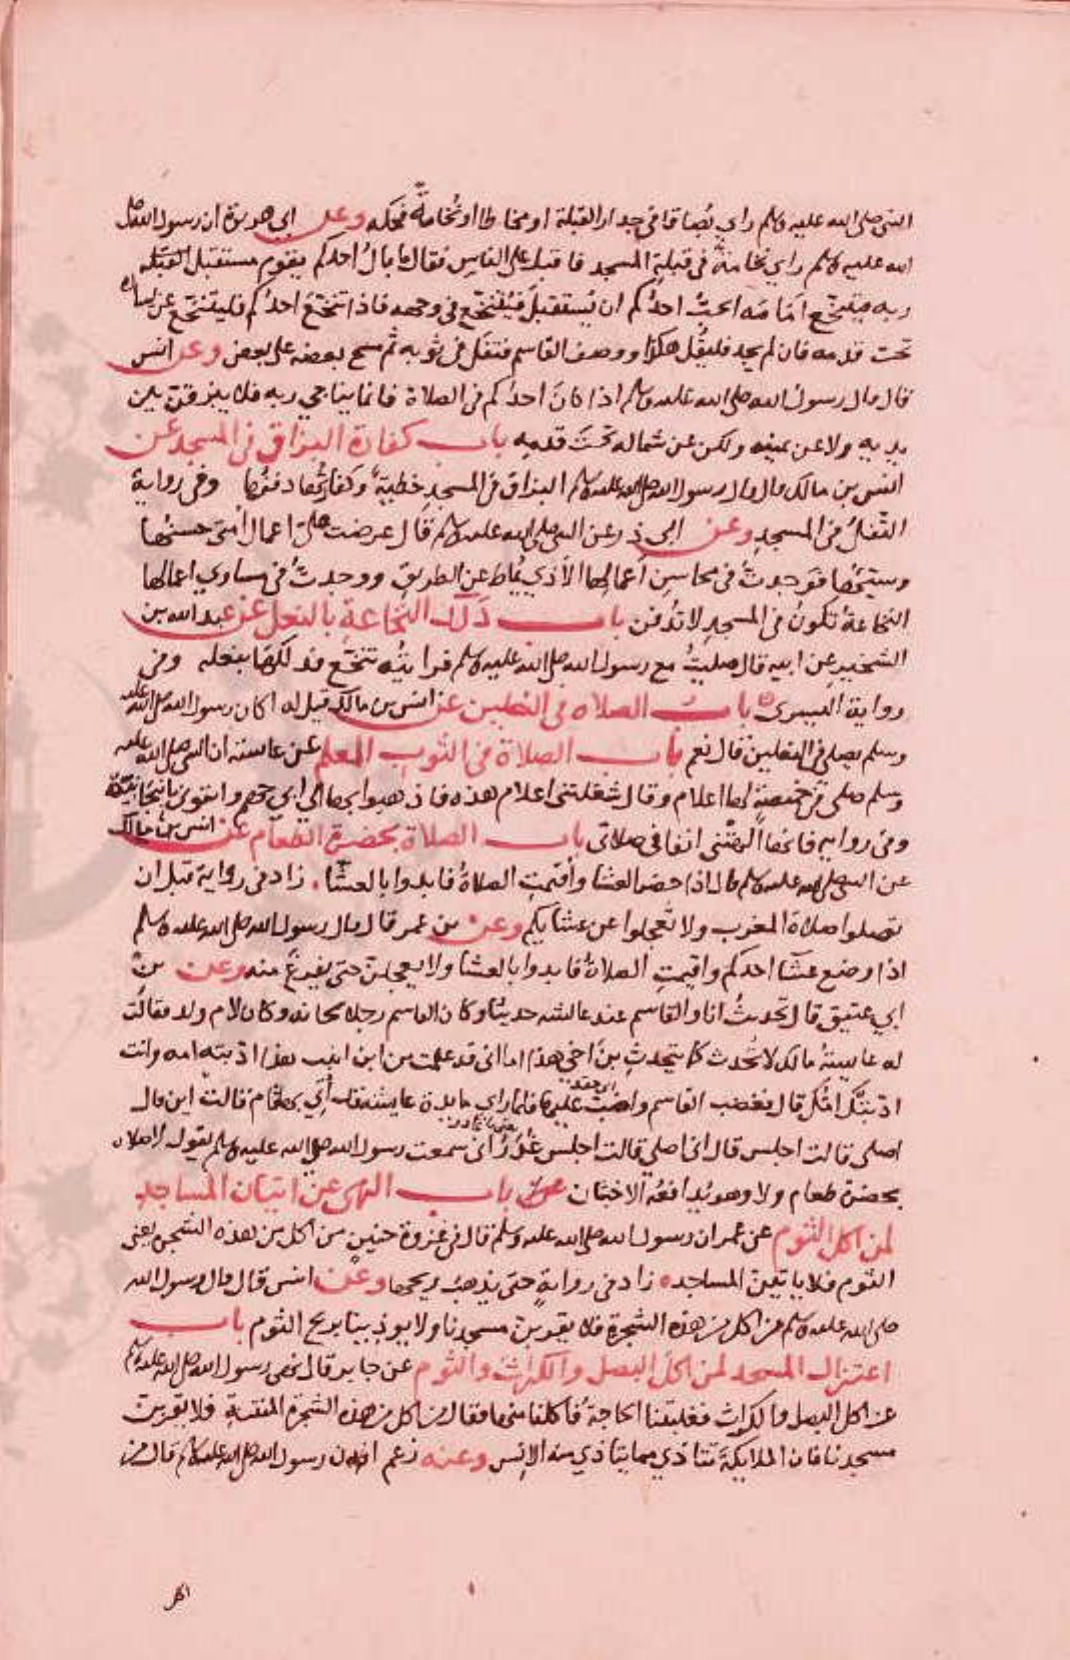 النبي صلى الله عليه وسلم راي بُصاقا في جدار القبلة او مخاطا او نُخامة فحكه وعن ابي هريرة ان رسول الله صلى
الله عليه وسلم راي نخامة في قبلة المسجد فاقبل على الناس فقال ما بال احدكم يقوم مستقبل
ربه فيتنخع امامه ايحبُ احدُكم ان يُستقبل فيُتنخع في وجهه فاذا تنخع احدُكم فليتنخع عن يساره
تحت قدمه فان لم يجد فليقُل هكذا ووصف القاسم فتفل في ثوبه ثم مسح بعضه على بعض وعن انس
قال قال رسول الله صلى الله عليه وسلم اذا كانَ احدُكم في الصلاة فانما يناجي ربه فلا يبزقن بين
يديه ولا عن يمينه ولكن عن شماله تحتَ قدمه باب كفارة البزاق في المسجد عن
انس بن مالك قال قال رسول الله صلى الله عليه وسلم البزاق في المسجدِ خطيةً وكفارتُها دفنُها وفي رواية
التفلُ في المسجدِ وعن ابي ذر عن النبي صلى الله عليه وسلم قال عرضت عليّ اعمال امتى حسنُها
وسيئها فوجدتُ في محاسنِ أعمالِها الأذي يُماط عن الطريقِ ووجدتُ في مساوي اعمالها
النخاعةُ تكونُ في المسجدِ لا تُدفن باب دَلك النُخاعةِ بالنعل عن عبد الله بن
الشخير عن ابيه قال صليتُ مع رسول الله صلى الله عليه وسلم فرايتُه تنخع فدلكها بنعله وفي
رواية اليسرى باب الصلاه في النعلين عن انس بن مالك قيل له اكان رسول الله صلى الله عليه
وسلم يصلي في النعلين قال نعم باب الصلاة في الثوب المعلم عن عائشه ان النبي صلى الله عليه
وسلم صلى في خميصةٍ لها اعلام وقال شغلتني اعلام هذه فاذهبوا بها الي ابي جهم واتوني بانبجانيّة
وفي روايه فانها الهتْني انفا في صلاتي باب الصلاة بحضرة الطعام عن انس بن مالك
عن النبي صلى الله عليه وسلم قال اذا حضر العشا وأقيمت الصلاةُ فابدوا بالعشا. زاد في رواية قبل ان
تصلوا صلاة المغرب ولا تعجلوا عن عشايكم وعن بن عمر قال قال رسول الله صلى الله عليه وسلم
اذا وضع عشا احدكم واقيمتِ الصلاةُ فابدوا بالعشا ولا يعجلن حتى يفرغَ منه وعن بن
ابي عتيق قال تحدثُ انا والقاسم عند عائشه حديثا وكان القاسم رجلا لحانه وكان لام ولد فقالت
له عايشةُ مالك لا تُحدث كما يتحدث بن اخي هذا اما اني قد علمت من اين اتيت هذا ادبته امه وانت
ادبتك امُّك قال فغضب القاسم واضبّ عليها فلما راي مايدة عايشه قد أُتي بها قام قالت اين قال
اصلي قالت اجلس قال اني اصلي قالت اجلس غُدَرُ اني سمعت رسول الله صلى الله عليه وسلم يقول لا صلاة
بحضرة طعام ولا وهو يُدافعُه الاخبثان باب النهي عن اتيان المساجد
لمن اكل الثوم عن عمر ان رسول الله صلى الله عليه وسلم قال في غزوة حنين من اكل من هذه الشجره يعني
الثوم فلا ياتين المساجد زاد في روايةٍ حتى يذهبَ ريحها وعن انس قال قال رسول الله
صلى الله عليه وسلم من اكل من هذه الشجرةِ فلا يقربن مسجدنا ولا يوذينا بريح الثوم باب
اعتزال المسجد لمن اكل البصل والكراث والثوم عن جابر قال نهى رسول الله صلى الله عليه وسلم
عن اكل البصل والكراث فغلبتنا الحاجةُ فاكلنا منها فقال من اكل من هذه الشجرة المنتنةِ فلا يقربن
مسجدنا فان الملايكةَ تتاذي مما يتاذي منه الإنس وعنه زعم ان رسول الله صلى الله عليه وسلم قال من
اكل